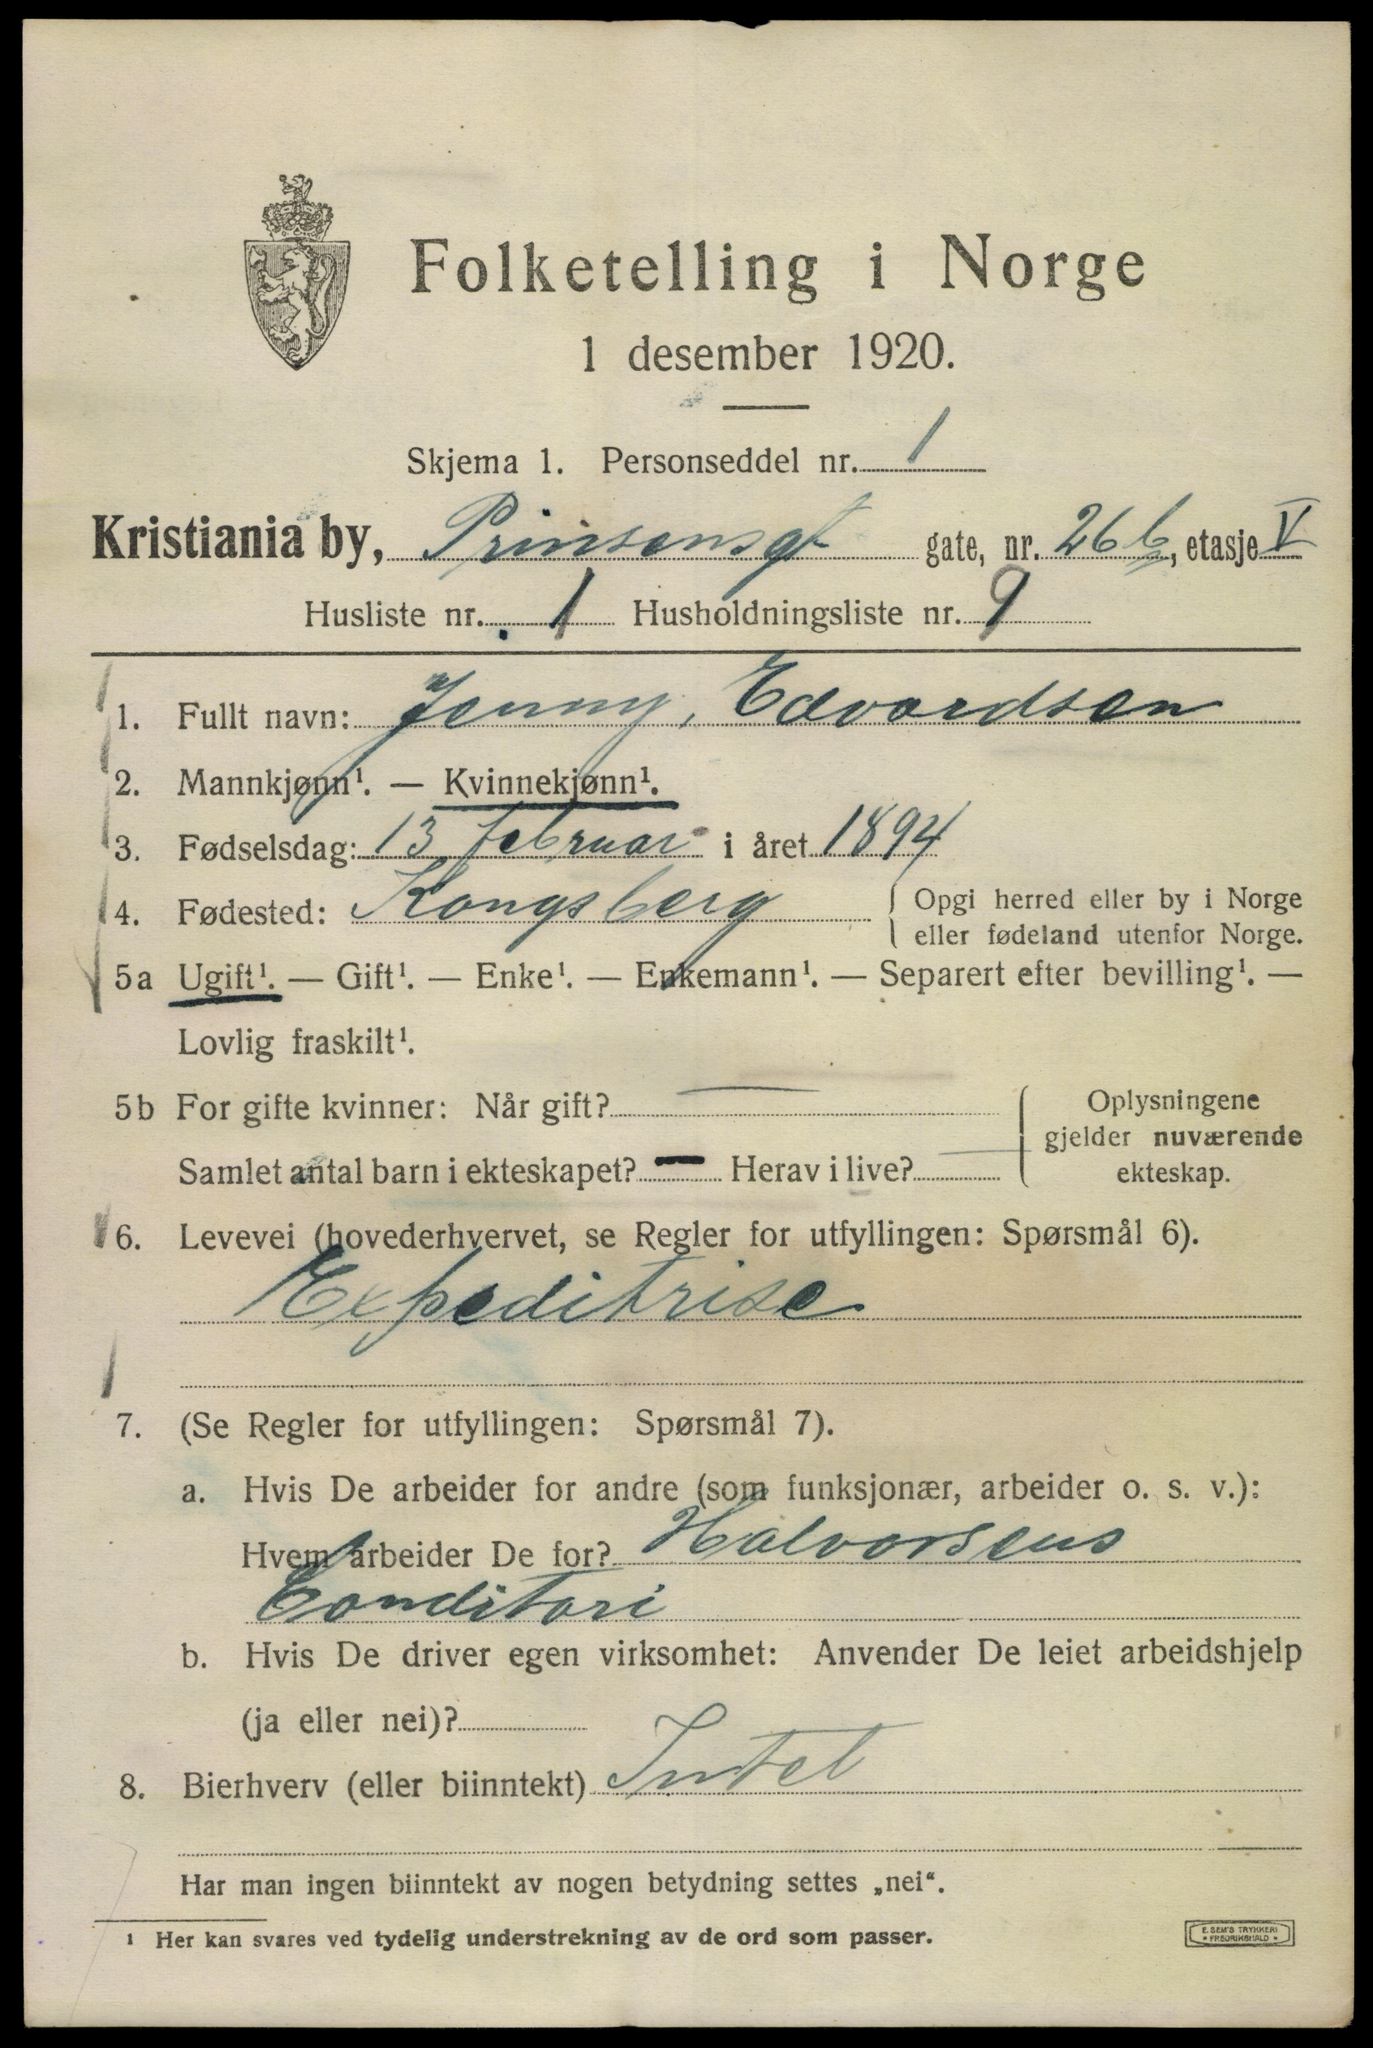 Folketelling i Norge
1 desember 1920.
Skjema 1. Personseddel nr. 1
Kristiania by, Prinsensgt gate, nr. 26 b, etasje V
Husliste nr. 1 Husholdningsliste nr. 9
1. Fullt navn: Jenny, Edvardsen
2. Mannkjønn¹. — Kvinnekjønn¹.
3. Fødselsdag: 13 februar i året 1894
4. Fødested: Kongsberg { Opgi herred eller by i Norge
eller fødeland utenfor Norge.
5a Ugift¹. — Gift¹. — Enke¹. — Enkemann¹. — Separert efter bevilling¹. —
Lovlig fraskilt¹.
5b For gifte kvinner: Når gift? — { Oplysningene
gjelder nuværende
Samlet antal barn i ekteskapet? — Herav i live? —
ekteskap.
6. Levevei (hovederhvervet, se Regler for utfyllingen: Spørsmål 6).
Expeditrise
7. (Se Regler for utfyllingen: Spørsmål 7).
a. Hvis De arbeider for andre (som funksjonær, arbeider o. s. v.):
Hvem arbeider De for? Halvorsens
Conditori
b. Hvis De driver egen virksomhet: Anvender De leiet arbeidshjelp
(ja eller nei)?
8. Bierhverv (eller biinntekt) Intet
Har man ingen biinntekt av nogen betydning settes „nei“.
¹ Her kan svares ved tydelig understrekning av de ord som passer.
E. SEM'S TRYKKERI
• FREDRIKSHALD •